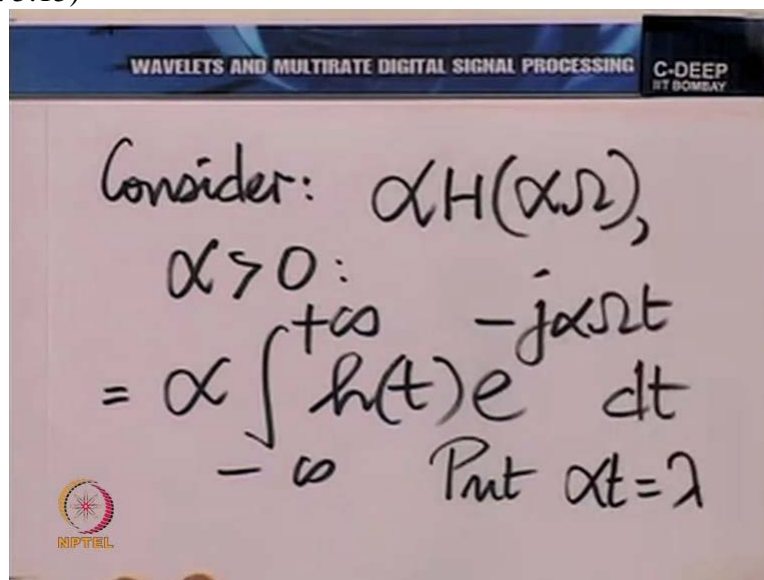 WAVELETS AND MULTIRATE DIGITAL SIGNAL PROCESSING
C-DEEP
IIT BOMBAY
Consider: αH(αΩ),
α>0:
= α ∫_{-∞}^{+∞} h(t)e^{-jαΩt} dt
Put αt=λ
NPTEL